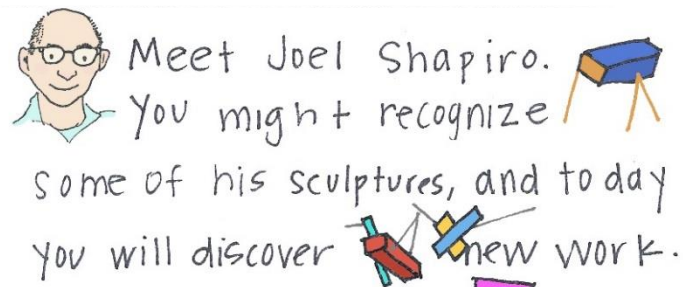 Meet Joel Shapiro.
You might recognize
some of his sculptures, and today
you will discover new work.